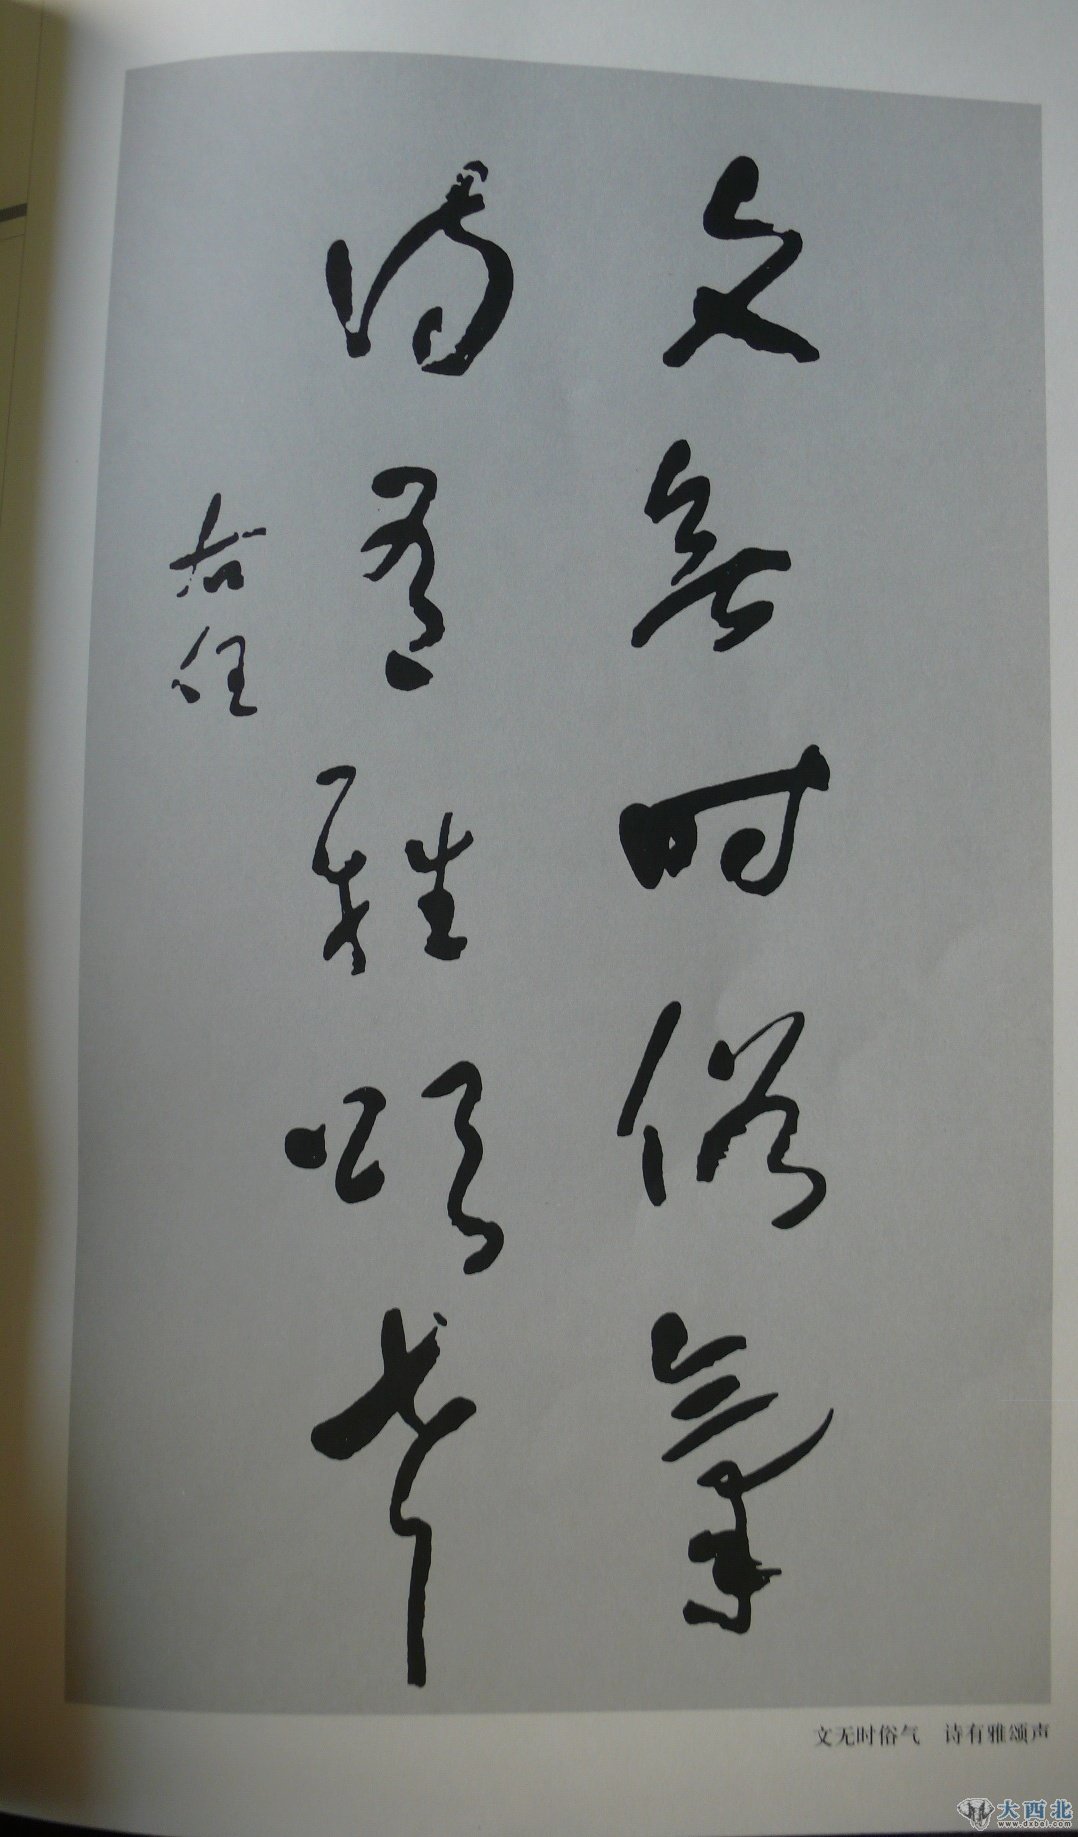 文无时俗氣
诗有雅颂声
右任
文无时俗气　诗有雅颂声
大西北
www.dxbei.com